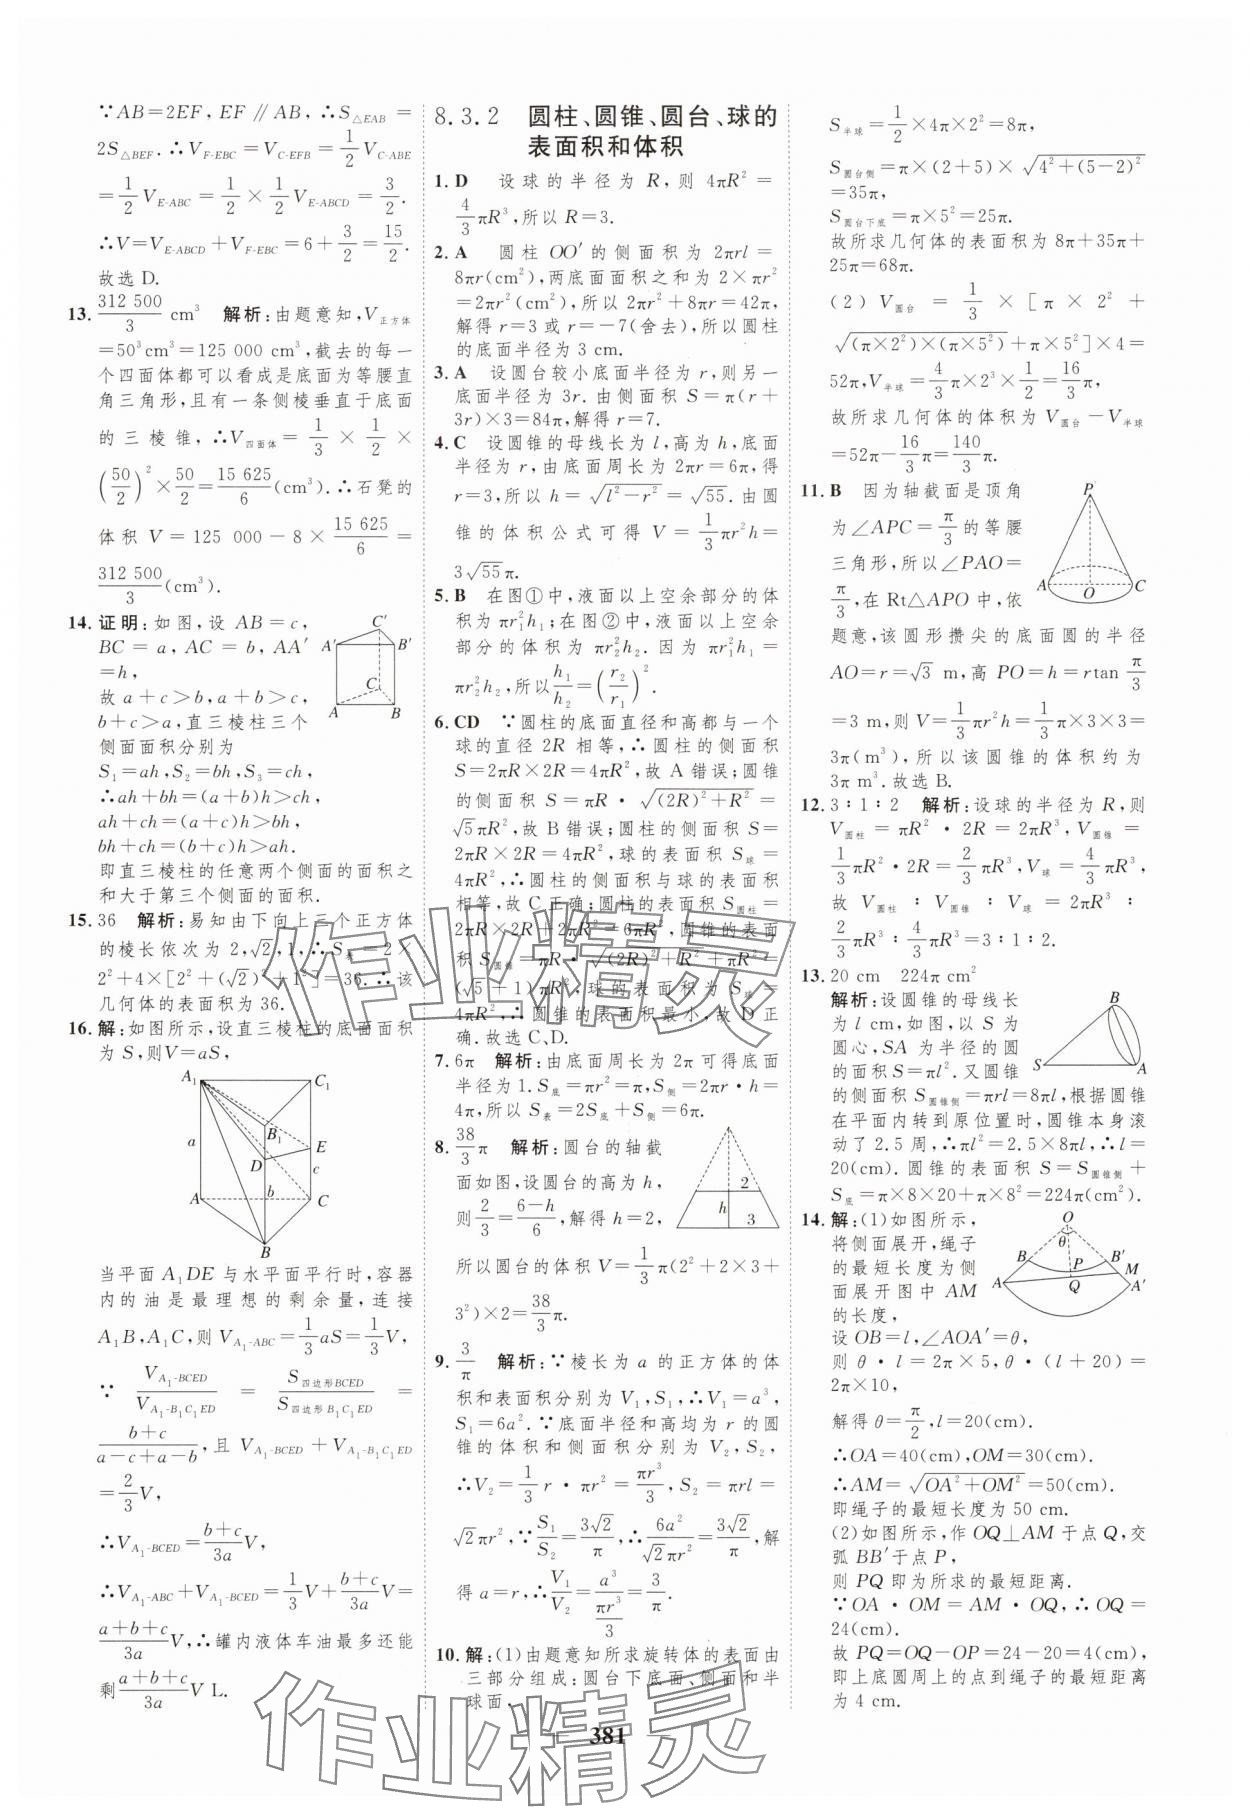 ∵AB=2EF, EF∥AB, ∴S△EAB=
2S△BEF. ∴V_F-EBC=V_C-EFB=1/2 V_C-ABE
=1/2 V_E-ABC=1/2×1/2 V_E-ABCD=3/2.
∴V=V_E-ABCD+V_F-EBC=6+3/2=15/2.
故选 D.
13. 312 500/3 cm³ 解析:由题意知,V正方体
=50³cm³=125 000 cm³,截去的每一
个四面体都可以看成是底面为等腰直
角三角形,且有一条侧棱垂直于底面
的三棱锥,∴V四面体=1/3×1/2×
(50/2)²×50/2=15 625/6(cm³).∴石凳的
体积 V=125 000-8×15 625/6=
312 500/3(cm³).
14. 证明:如图,设 AB=c,
BC=a,AC=b,AA′
=h,
故 a+c>b,a+b>c,
b+c>a,直三棱柱三个
侧面面积分别为
S₁=ah,S₂=bh,S₃=ch,
∴ah+bh=(a+b)h>ch,
ah+ch=(a+c)h>bh,
bh+ch=(b+c)h>ah.
即直三棱柱的任意两个侧面的面积之
和大于第三个侧面的面积.
A′ C′ B′ C A B
15. 36 解析:易知由下向上三个正方体
的棱长依次为 2,√2,1,∴S表=2×
2²+4×[2²+(√2)²+1²]=36.∴该
几何体的表面积为 36.
16. 解:如图所示,设直三棱柱的底面面积
为 S,则V=aS,
A₁ C₁ B₁ E a D c b A C B
当平面 A₁DE 与水平面平行时,容器
内的油是最理想的剩余量,连接
A₁B,A₁C,则 V_A₁-ABC=1/3 aS=1/3 V,
∵ V_A₁-BCED/V_A₁-B₁C₁ED = S四边形BCED/S四边形B₁C₁ED =
(b+c)/(a-c+a-b),且 V_A₁-BCED+V_A₁-B₁C₁ED
=2/3 V,
∴V_A₁-BCED=(b+c)/3a V,
∴V_A₁-ABC+V_A₁-BCED=1/3 V+(b+c)/3a V=
(a+b+c)/3a V,∴罐内液体车油最多还能
剩 (a+b+c)/3a V L.
8.3.2 圆柱、圆锥、圆台、球的
表面积和体积
1. D 设球的半径为 R,则 4πR²=
4/3 πR³,所以 R=3.
2. A 圆柱 OO′的侧面积为 2πrl=
8πr(cm²),两底面面积之和为 2×πr²
=2πr²(cm²),所以 2πr²+8πr=42π,
解得 r=3 或 r=-7(舍去),所以圆柱
的底面半径为 3 cm.
3. A 设圆台较小底面半径为 r,则另一
底面半径为 3r.由侧面积 S=π(r+
3r)×3=84π,解得 r=7.
4. C 设圆锥的母线长为 l,高为 h,底面
半径为 r,由底面周长为 2πr=6π,得
r=3,所以 h=√(l²-r²)=√55.由圆
锥的体积公式可得 V=1/3 πr²h=
3√55π.
5. B 在图①中,液面以上空余部分的体
积为 πr₁²h₁;在图②中,液面以上空余
部分的体积为 πr₂²h₂.因为 πr₁²h₁=
πr₂²h₂,所以 h₁/h₂=(r₂/r₁)².
6. CD ∵圆柱的底面直径和高都与一个
球的直径 2R 相等,∴圆柱的侧面积
S=2πR×2R=4πR²,故 A 错误;圆锥
的侧面积 S=πR·√((2R)²+R²)=
√5πR²,故 B 错误;圆柱的侧面积 S=
2πR×2R=4πR²,球的表面积 S球=
4πR²,∴圆柱的侧面积与球的表面积
相等,故 C 正确;圆柱的表面积 S圆柱=
2πR×2R+2πR²=6πR²,圆锥的表面
积 S圆锥=πR·√((2R)²+R²)+πR²=
(√5+1)πR²,球的表面积 S球=
4πR²,∴圆锥的表面积最小,故 D 正
确.故选 C、D.
7. 6π 解析:由底面周长为 2π 可得底面
半径为 1.S底=πr²=π,S侧=2πr·h=
4π,所以 S表=2S底+S侧=6π.
8. 38/3 π 解析:圆台的轴截
面如图,设圆台的高为 h,
则 2/3=(6-h)/6,解得 h=2,
2 h 3
所以圆台的体积 V=1/3 π(2²+2×3+
3²)×2=38/3 π.
9. 3/π 解析:∵棱长为 a 的正方体的体
积和表面积分别为 V₁,S₁,∴V₁=a³,
S₁=6a².∵底面半径和高均为 r 的圆
锥的体积和侧面积分别为 V₂,S₂,
∴V₂=1/3 r·πr²=πr³/3,S₂=πrl=
√2πr²,∵S₁/S₂=3√2/π,∴6a²/√2πr²=3√2/π,解
得 a=r,∴V₁/V₂=a³/(πr³/3)=3/π.
10. 解:(1)由题意知所求旋转体的表面由
三部分组成:圆台下底面、侧面和半
球面.
S半球=1/2×4π×2²=8π,
S圆台侧=π×(2+5)×√(4²+(5-2)²)
=35π,
S圆台下底=π×5²=25π.
故所求几何体的表面积为 8π+35π+
25π=68π.
(2) V圆台=1/3×[π×2²+
√((π×2²)×(π×5²))+π×5²]×4=
52π,V半球=4/3 π×2³×1/2=16/3 π,
故所求几何体的体积为 V圆台-V半球
=52π-16/3 π=140/3 π.
11. B 因为轴截面是顶角
为∠APC=π/3 的等腰
三角形,所以∠PAO=
π/3,在 Rt△APO 中,依
P A O C
题意,该圆形攒尖的底面圆的半径
AO=r=√3 m,高 PO=h=rtan π/3
=3 m,则 V=1/3 πr²h=1/3 π×3×3=
3π(m³),所以该圆锥的体积约为
3π m³.故选 B.
12. 3∶1∶2 解析:设球的半径为 R,则
V圆柱=πR²·2R=2πR³,V圆锥=
1/3 πR²·2R=2/3 πR³,V球=4/3 πR³,
故 V圆柱∶V圆锥∶V球=2πR³∶
2/3 πR³∶4/3 πR³=3∶1∶2.
13. 20 cm 224π cm²
解析:设圆锥的母线长
为 l cm,如图,以 S 为
圆心,SA 为半径的圆
的面积 S=πl².又圆锥
B S A
的侧面积 S圆锥侧=πrl=8πl,根据圆锥
在平面内转到原位置时,圆锥本身滚
动了 2.5 周,∴πl²=2.5×8πl,∴l=
20(cm).圆锥的表面积 S=S圆锥侧+
S底=π×8×20+π×8²=224π(cm²).
14. 解:(1)如图所示,
将侧面展开,绳子
的最短长度为侧
面展开图中 AM
的长度,
O θ B P B′ M A Q A′
设 OB=l,∠AOA′=θ,
则 θ·l=2π×5,θ·(l+20)=
2π×10,
解得 θ=π/2,l=20(cm).
∴OA=40(cm),OM=30(cm).
∴AM=√(OA²+OM²)=50(cm).
即绳子的最短长度为 50 cm.
(2)如图所示,作 OQ⊥AM 于点 Q,交
弧 BB′于点 P,
则 PQ 即为所求的最短距离.
∵OA·OM=AM·OQ,∴OQ=
24(cm).
故 PQ=OQ-OP=24-20=4(cm),
即上底圆周上的点到绳子的最短距离
为 4 cm.
381
作业精灵
作业精灵